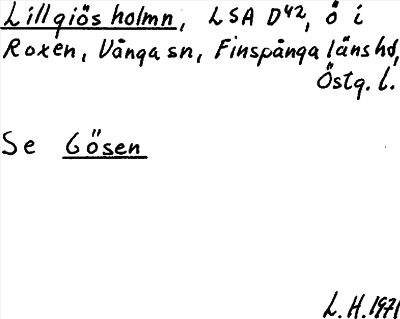 Lillgiösholmn, LSA D42, ö i
Roxen, Vånga sn, Finspånga länshd,
Östg. l.
Se Gösen
L. H. 1971